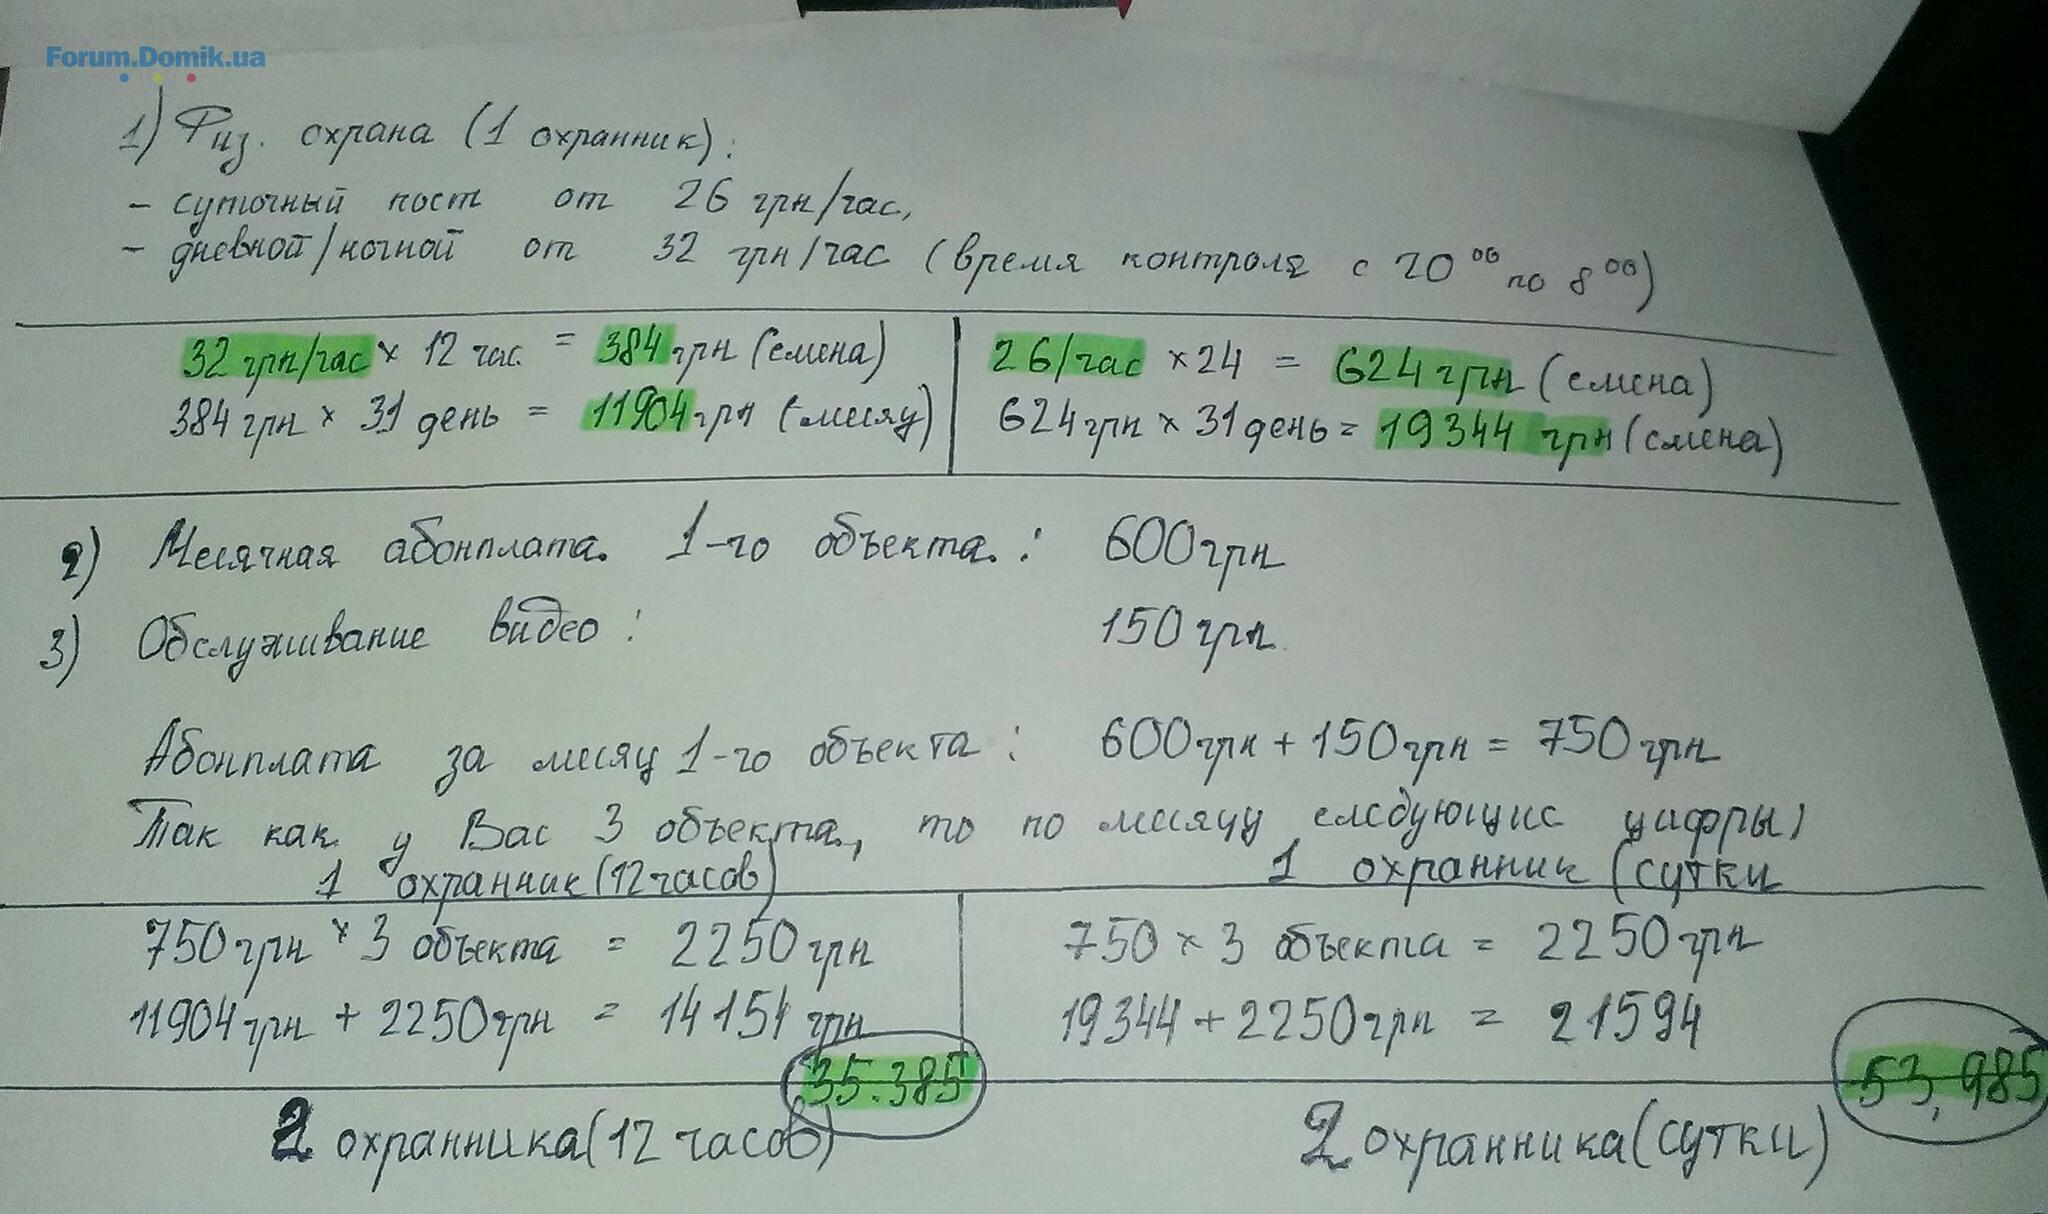 Forum.Domik.ua
1) Физ. охрана (1 охранник):
- суточный пост от 26 грн/час,
- дневной/ночной от 32 грн/час (время контроля с 20⁰⁰ по 8⁰⁰)
32 грн/час × 12 час. = 384 грн (смена)
384 грн × 31 день = 11904 грн (-месяц)
26/час × 24 = 624 грн (смена)
624 грн × 31 день = 19344 грн (смена)
2) Месячная абонплата. 1-го объекта. : 600 грн
3) Обслуживание видео : 150 грн.
Абонплата за месяц 1-го объекта : 600 грн + 150 грн = 750 грн
Так как у Вас 3 объекта, то по месяцу следующие цифры:
1 охранник (12 часов)
750 грн × 3 объекта = 2250 грн
11904 грн + 2250 грн = 14154 грн
35.385
1 охранник (сутки
750 × 3 объекта = 2250 грн
19344 + 2250 грн = 21594
53,985
2 охранника (12 часов)
2 охранника (сутки)